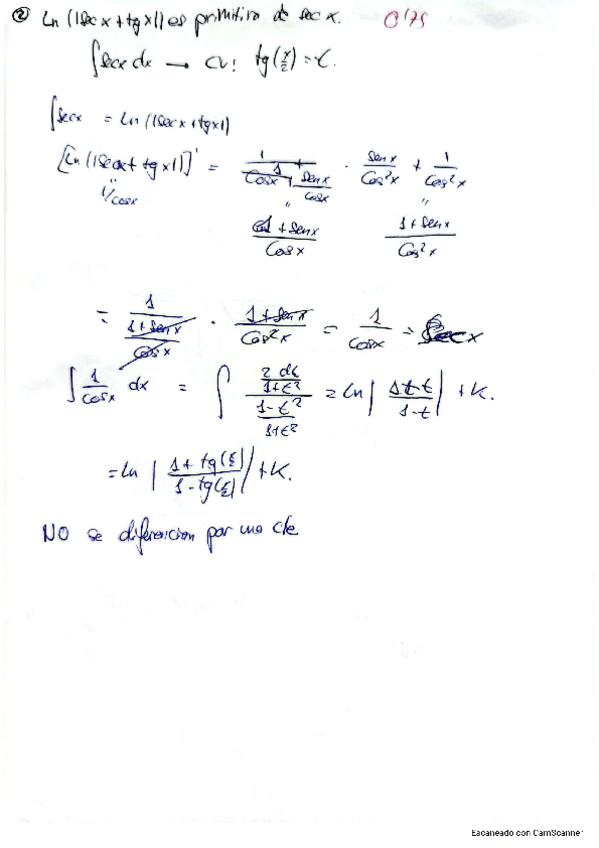 ② Ln (|sec x + tg x|) es primitiva de sec x. 0'75
∫secx dx → CV: tg(x/2) = t.
∫secx = Ln(|secx + tgx|)
[Ln(|secx + tg x|)]' = 1/(1/cosx + senx/cosx) · senx/cos²x + 1/cos²x
" 1/cosx " (1 + senx)/cosx " (1 + senx)/cos²x
= 1/((1 + senx)/cosx) · (1 + senx)/cos²x = 1/cosx = Secx
∫ 1/cosx dx = ∫ (2dt/(1+t²))/((1-t²)/(1+t²)) = Ln |(1+t)/(1-t)| + K.
= Ln |(1 + tg(x/2))/(1 - tg(x/2))| + K.
NO se diferencian por una cte
Escaneado con CamScanner